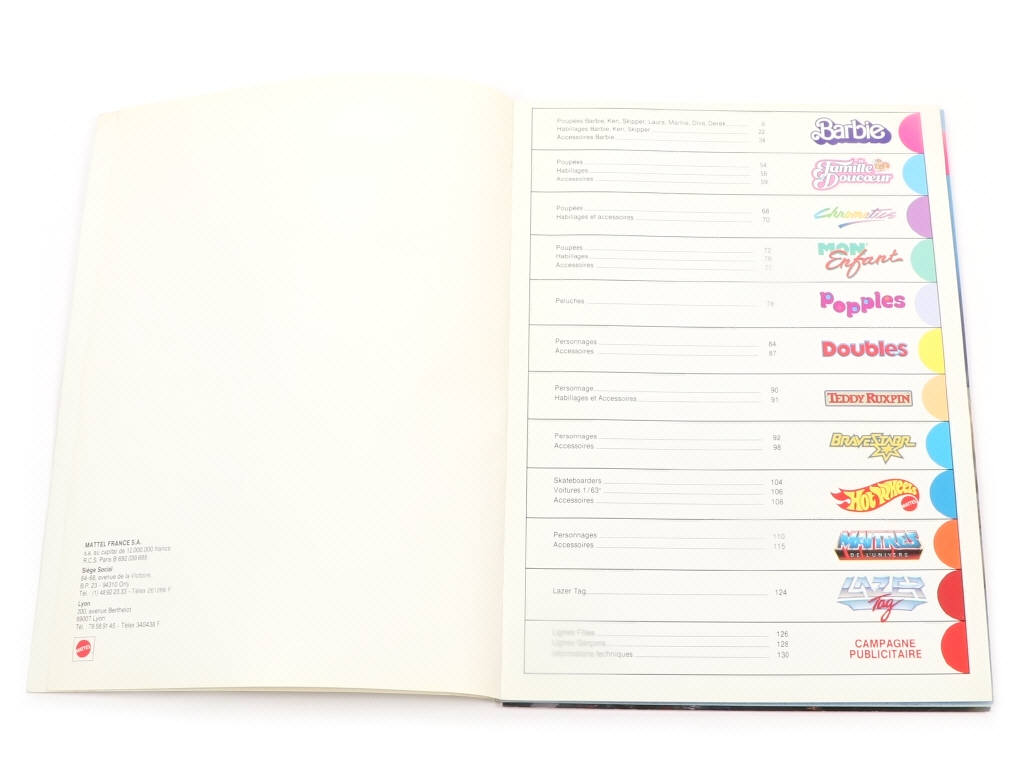 MATTEL FRANCE S.A.
s.a. au capital de 12.000.000 francs
R.C.S. Paris B 692 039 688
Siège Social
64-68, avenue de la Victoire,
B.P. 23 - 94310 Orly
Tél. : (1) 48 92 23 33 - Télex
Lyon
200, avenue Berthelot
69007 Lyon
Tél. : 78 58 91 45 - Télex 340438 F
MATTEL
Poupées Barbie, Ken, Skipper, Laura, Marina, Diva, Derek 6
Habillages Barbie, Ken, Skipper 22
Accessoires Barbie 34
Barbie
Poupées 54
Habillages 56
Accessoires 59
La Famille
Doucœur
Poupées 68
Habillages et accessoires 70
Chromatics
Poupées 72
Habillages 76
Accessoires
MON
Enfant
Peluches 78
Popples
Personnages 84
Accessoires 87
Doubles
Personnage 90
Habillages et Accessoires 91
TEDDY RUXPIN
Personnages 92
Accessoires 98
BRAVESTARR
Skateboarders 104
Voitures 1/63e 106
Accessoires 108
HOT WHEELS
MATTEL
Personnages 110
Accessoires 115
MAITRES
DE L'UNIVERS
Lazer Tag 124
LAZER
Tag
Lignes Filles 126
Lignes Garçons 128
Informations techniques 130
CAMPAGNE
PUBLICITAIRE